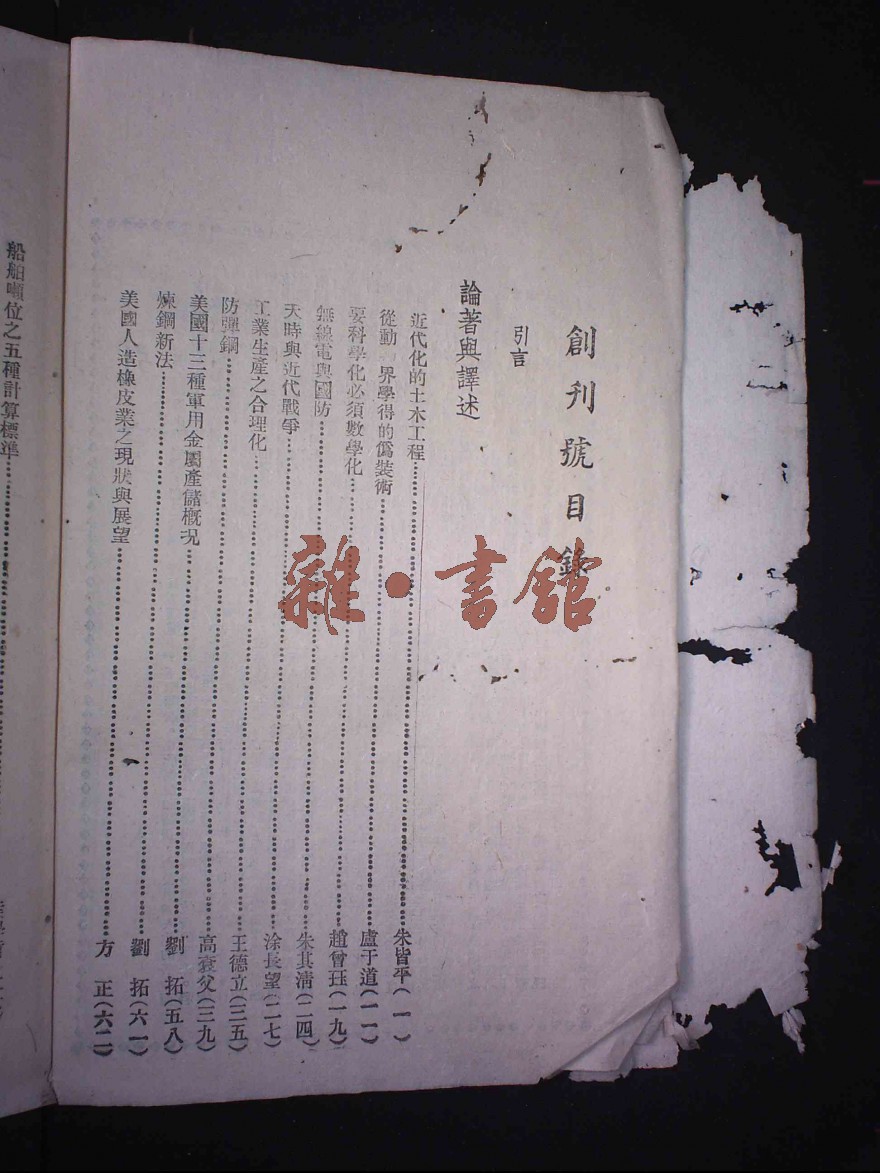 創刊號目錄
引言
論著與譯述
近代化的土木工程……朱皆平(一)
從動 界學得的僞裝術……盧于道(一一)
要科學化必須數學化……趙曾珏(一九)
無線電與國防……朱其淸(二四)
天時與近代戰爭……涂長望(二七)
工業生產之合理化……王德立(三五)
防彈鋼……高袞父(三九)
美國十三種軍用金屬產儲概況……劉 拓(五八)
煉鋼新法……劉 拓(六一)
美國人造橡皮業之現狀與展望……方 正(六二)
船舶噸位之五種計算標準……
雜•書館